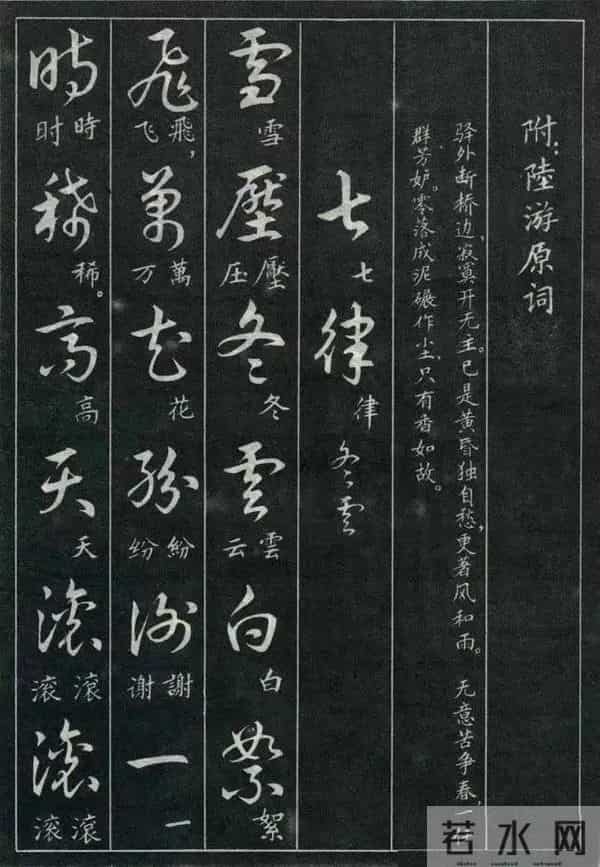 附：陸游原词
驿外断桥边，寂寞开无主。已是黄昏独自愁，更著风和雨。 无意苦争春，一
群芳妒。零落成泥碾作尘，只有香如故。
七律 冬云
七 律
雪壓冬雲白絮
雪 壓压 冬 雲云 白 絮
飛萬花紛謝一
飛，飞 萬万 花 紛纷 謝谢 一
時稀高天滾滾
時时 稀。 高 天 滾滚 滾滚
若水网